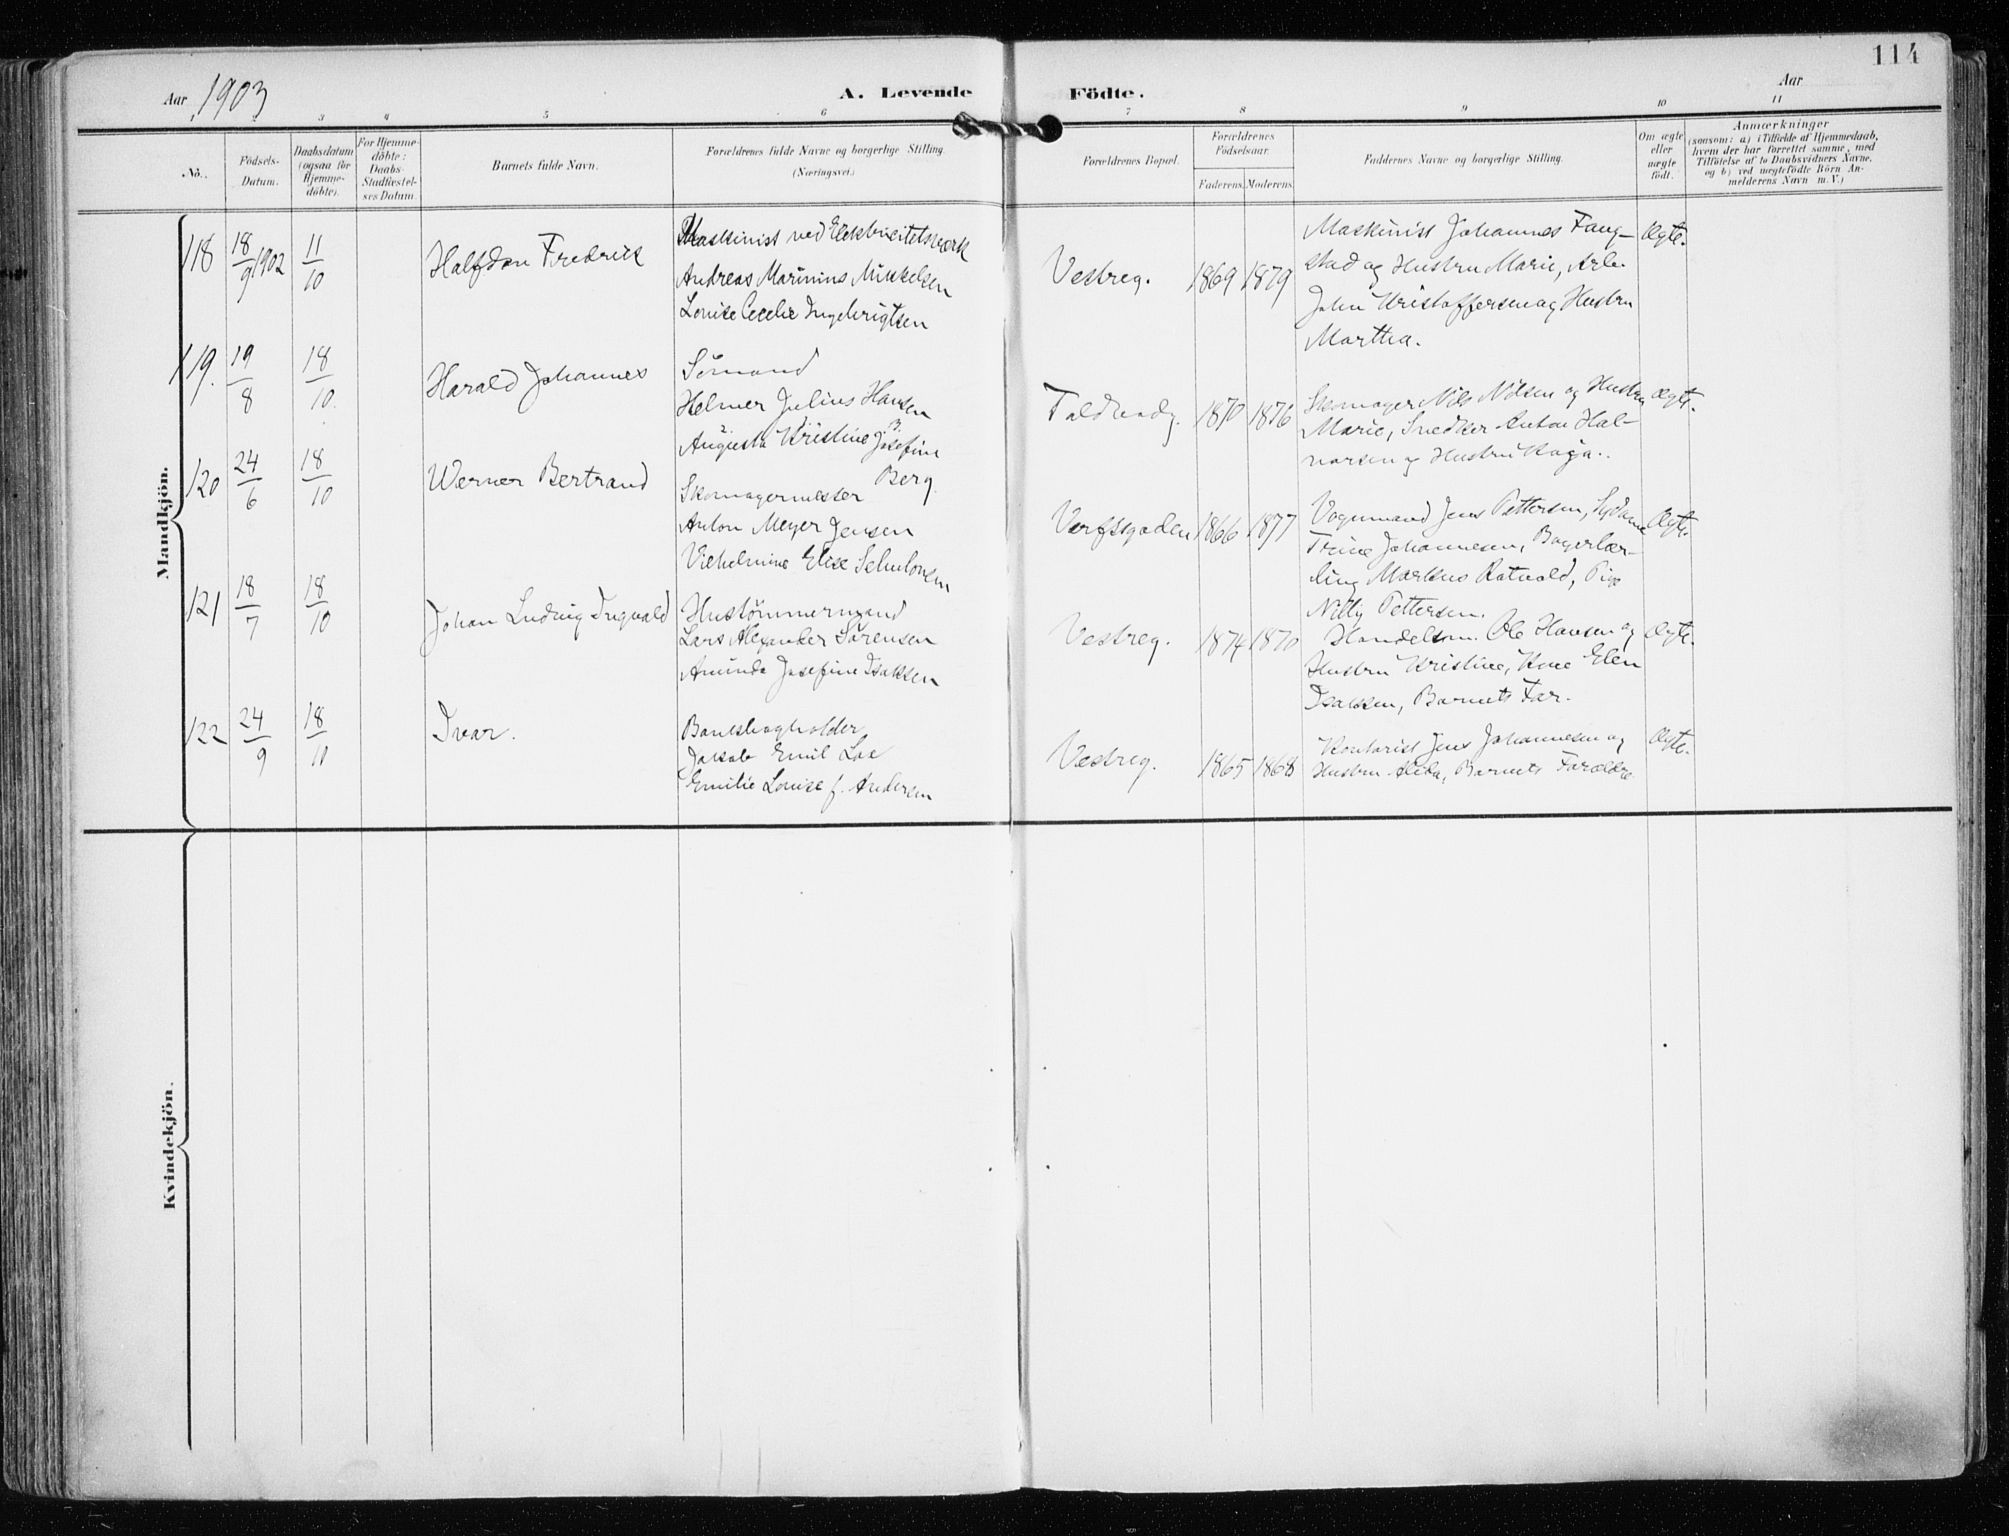 114
Aar 1903
A. Levende Födte.
Aar
2 3 4 5 6 7 8 9 10 11
No.
Födsels-Datum.
Daabsdatum (ogsaa för Hjemmedöbte).
For Hjemmedöbte: Daabs-Stadfæstelses Datum.
Barnets fulde Navn.
Forældrenes fulde Navne og borgerlige Stilling.
(Næringsvei.)
Forældrenes Bopæl.
Forældrenes Födselsaar.
Faderens. Moderens.
Faddernes Navne og borgerlige Stilling.
Om ægte eller uægte födt.
Anmærkninger
(saasom: a) i Tilfælde af Hjemmedaab,
hvem der har forrettet samme, med
Tilföielse af to Daabsvidners Navne,
og b) ved uægtefödte Börn An-
melderens Navn m. V.)
Mandkjön.
118 18/9 1902 11/10 Halfdan Fredrik
Maskinist ved Elektricitetsværk
Andreas Marinius Mikkelsen
Louise Cecelie Ingebrigtsen
Vestreg. 1869 1879
Maskinist Johannes Faug-
stad og Hustru Marie, Arb.
John Kristoffersen og Hustru
Martha.
Ægte.
119. 19/8 18/10. Harald Johannes
Sömand
Helmer Julius Hansen
Augusta Kristine Josefine
Berg
1870 1876
Skomager Nils Nilsen og Hustru
Marie, Snedker Anton Hal-
varsen og Hustru Kaja.
Ægte.
120 24/6 18/10 Werner Bertrand
Skomagermester
Anton Meyer Jensen
Vilhelmine Elise
Verftsgaden 1866 1877
Vognmand Jens Pettersen, Sydame
Trine Johannesen, Bagerlær-
ling Markus Pige
Nilly Pettersen.
Ægte.
121 18/7 18/10 Johan Ludvig Ingvald
Hustömmermand
Lars Alexander Sörensen
Aminda Josefine Isaksen
Vestreg. 1874 1870
Handelsm. Ole Hansen og
Hustru Kristine, Kone Elen
Isaksen, Barnets Far.
Ægte.
122 24/9 18/10 Ivar.
Bankbogholder
Jakob Emil Loe
Emilie Louise f. Andersen
Vestreg. 1865 1868
Kontorist Jens Johannesen og
Hustru Alida, Barnets Forældre
Ægte.
Kvindekjön.